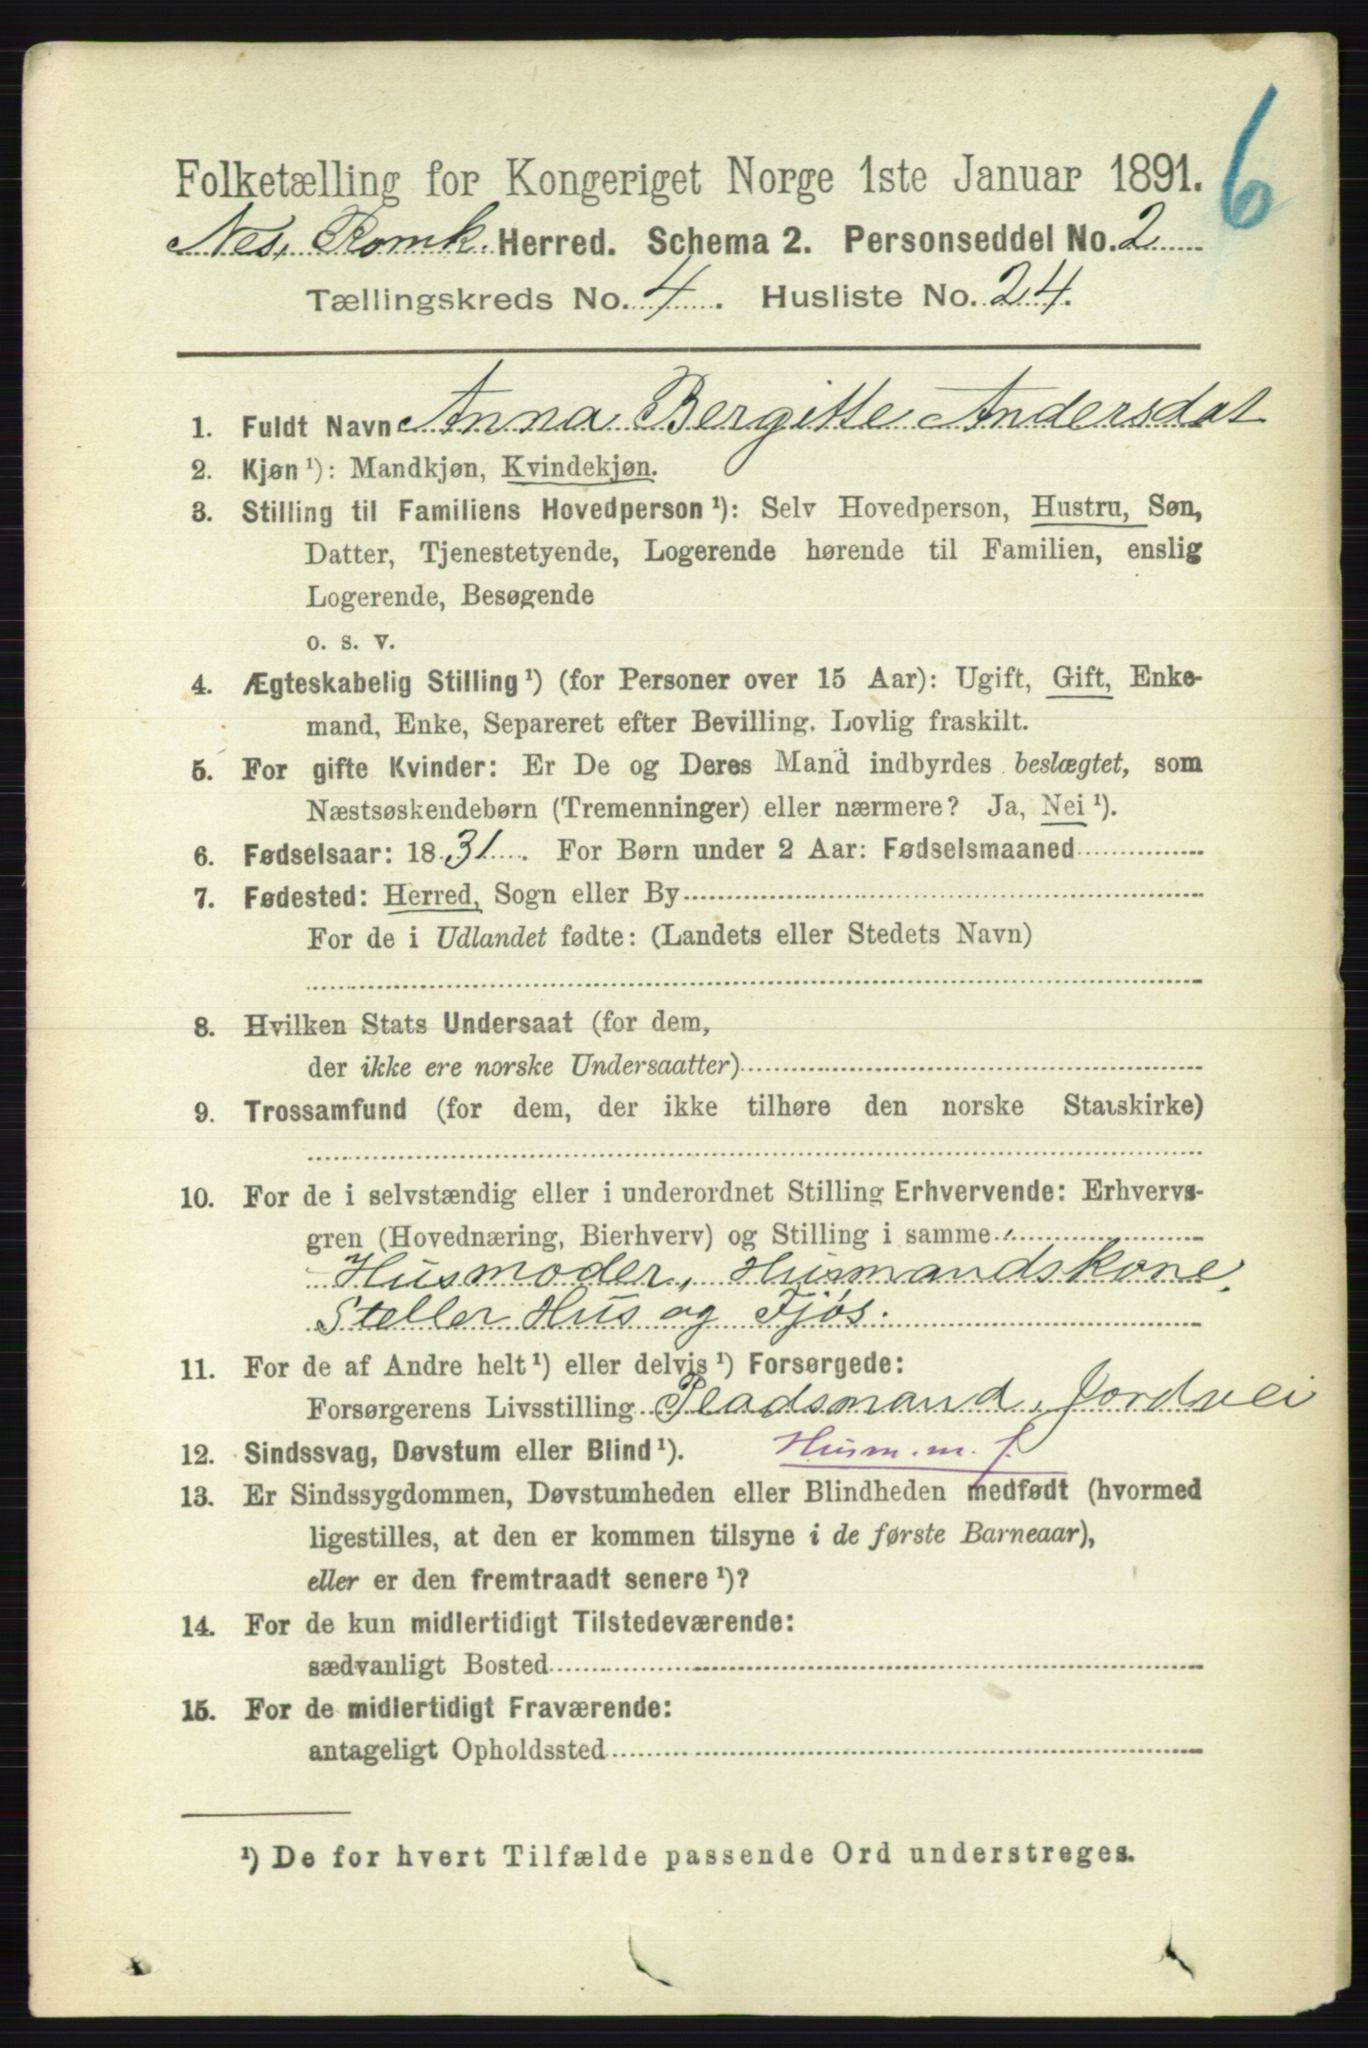 6
Folketælling for Kongeriget Norge 1ste Januar 1891.
Nes, Romk. Herred. Schema 2. Personseddel No. 2
Tællingskreds No. 4. Husliste No. 24.
1. Fuldt Navn Anna Bergitte Andersdat
2. Kjøn ¹): Mandkjøn, Kvindekjøn.
3. Stilling til Familiens Hovedperson ¹): Selv Hovedperson, Hustru, Søn,
Datter, Tjenestetyende, Logerende hørende til Familien, enslig
Logerende, Besøgende
o. s. v.
4. Ægteskabelig Stilling ¹) (for Personer over 15 Aar): Ugift, Gift, Enke-
mand, Enke, Separeret efter Bevilling. Lovlig fraskilt.
5. For gifte Kvinder: Er De og Deres Mand indbyrdes beslægtet, som
Næstsøskendebørn (Tremenninger) eller nærmere? Ja, Nei ¹).
6. Fødselsaar: 1831. For Børn under 2 Aar: Fødselsmaaned
7. Fødested: Herred, Sogn eller By
For de i Udlandet fødte: (Landets eller Stedets Navn)
8. Hvilken Stats Undersaat (for dem,
der ikke ere norske Undersaatter)
9. Trossamfund (for dem, der ikke tilhøre den norske Statskirke)
10. For de i selvstændig eller i underordnet Stilling Erhvervende: Erhvervs-
gren (Hovednæring, Bierhverv) og Stilling i samme
Husmoder, Husmandskone,
Steller Hus og Fjøs.
11. For de af Andre helt ¹) eller delvis ¹) Forsørgede:
Forsørgerens Livsstilling Pladsmand, Jordvei
Husm. m. J.
12. Sindssvag, Døvstum eller Blind ¹).
13. Er Sindssygdommen, Døvstumheden eller Blindheden medfødt (hvormed
ligestilles, at den er kommen tilsyne i de første Barneaar),
eller er den fremtraadt senere ¹)?
14. For de kun midlertidigt Tilstedeværende:
sædvanligt Bosted
15. For de midlertidigt Fraværende:
antageligt Opholdssted
¹) De for hvert Tilfælde passende Ord understreges.